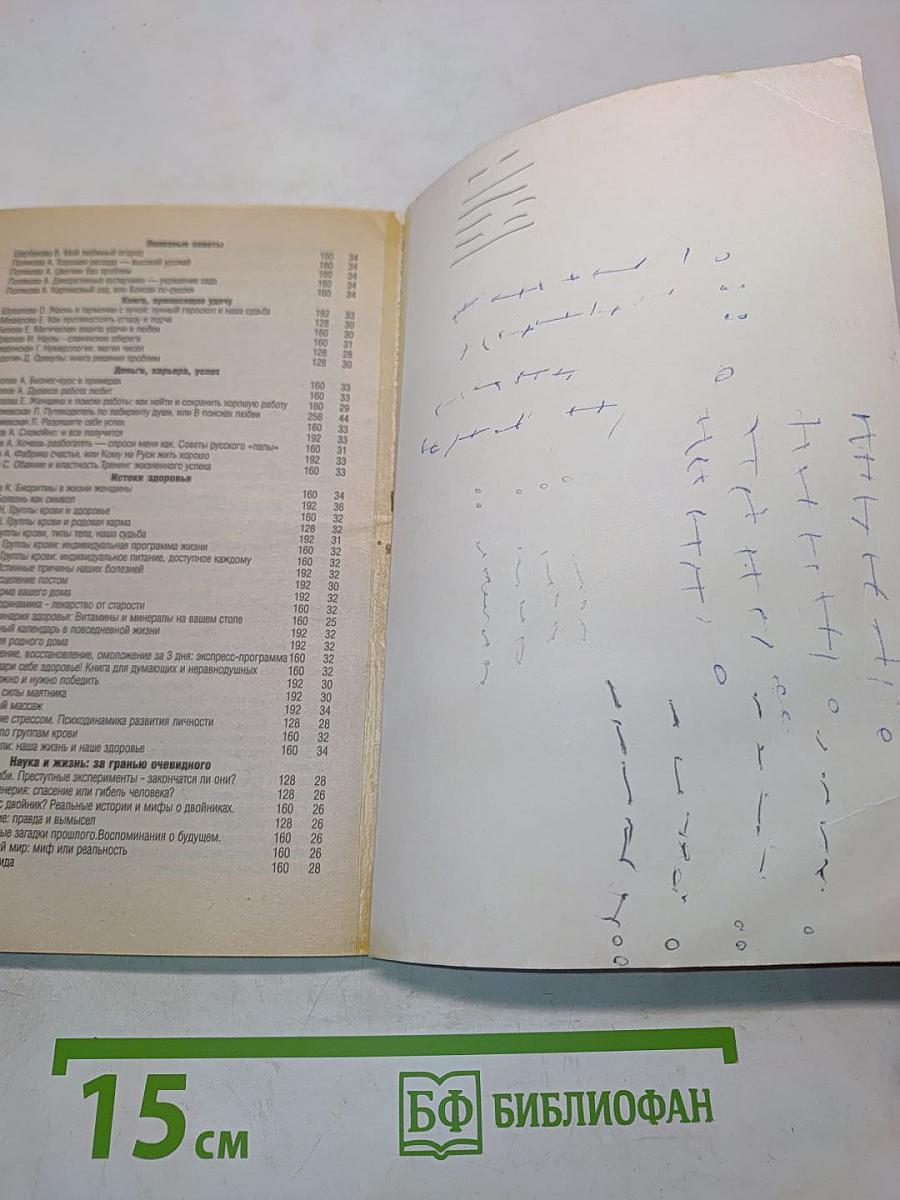 Полезные советы
Щербакова В. Мой любимый огород 160 34
Полякова А. Хорошая рассада — высокий урожай 160 34
Полякова А. Цветник без проблем 160 34
Полякова А. Декоративные кустарники — украшение сада 160 34
Полякова А. Карликовый сад, или Бонсаи по-русски 160 34
Книга, приносящая удачу
Шувалова О. Жизнь в гармонии с луной: лунный гороскоп и наша судьба 192 33
Е. Как противостоять сглазу и порче 128 30
Е. Магическая защита удачи и любви 160 30
Наузы - славянские обереги 160 31
Г. Нумерология: магия чисел 128 28
Д. Оракулы: книга решения проблем 128 30
Деньги, карьера, успех
А. Бизнес-курс в примерах 160 33
А. Дураков работа любит 160 33
Е. Женщина в поиске работы: как найти и сохранить хорошую работу 160 29
Л. Путеводитель по лабиринту души, или В поисках любви 256 44
Л. Разрешите себе успех 160 33
А. Спокойно: и все получится 192 33
А. Хочешь разбогатеть — спроси меня как. Советы русского «папы» 160 31
А. Фабрика счастья, или Кому на Руси жить хорошо 192 33
С. Обаяние и властность. Тренинг жизненного успеха 160 33
Истоки здоровья
К. Биоритмы в жизни женщины 160 34
Болезнь как символ 192 36
Н. Группы крови и здоровье 160 32
Н. Группы крови и родовая карма 128 32
группы крови, типы тела, наша судьба 192 31
Группы крови: индивидуальная программа жизни 160 32
Группы крови: индивидуальное питание, доступное каждому 192 32
Истинные причины наших болезней 192 30
исцеление постом 192 32
карма вашего дома 160 32
динамика - лекарство от старости 160 25
здоровья: Витамины и минералы на вашем столе 192 32
ный календарь в повседневной жизни 192 32
ия родного дома 160 32
ение, восстановление, омоложение за 3 дня: экспресс-программа 160 32
дари себе здоровье! Книга для думающих и неравнодушных 192 30
ожно и нужно победить 192 30
силы маятника 192 34
ый массаж 128 28
ие стрессом. Психодинамика развития личности 160 32
по группам крови 160 34
ли: наша жизнь и наше здоровье
Наука и жизнь: за гранью очевидного
би. Преступные эксперименты - закончатся ли они? 128 28
енерия: спасение или гибель человека? 128 26
с двойник? Реальные истории и мифы о двойниках. 160 26
ие: правда и вымысел 128 26
ые загадки прошлого.Воспоминания о будущем. 160 26
й мир: миф или реальность 160 26
ида 160 28
15 см
БФ БИБЛИОФАН